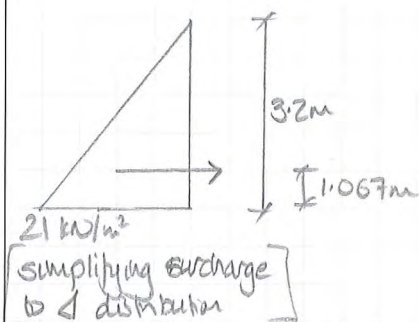 3.2m
1.067m
21 kN/m²
[simplifying surcharge
to ⊿ distribution]